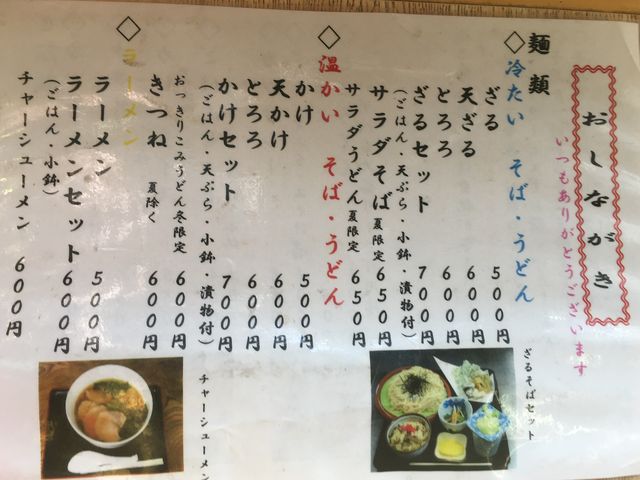 おしながき
いつもありがとうございます
麺類
◇冷たい そば・うどん
ざる 500円
天ざる 600円
とろろ 600円
ざるセット 700円
(ごはん・天ぷら・小鉢・漬物付)
サラダそば 夏限定 650円
サラダうどん 夏限定 650円
◇温かい そば・うどん
かけ 500円
天かけ 600円
とろろ 600円
かけセット 700円
(ごはん・天ぷら・小鉢・漬物付)
おっきりこみうどん冬限定 600円
きつね 夏除く 600円
◇ラーメン
ラーメン 500円
ラーメンセット 600円
(ごはん・小鉢)
チャーシューメン 600円
ざるそばセット
チャーシューメン